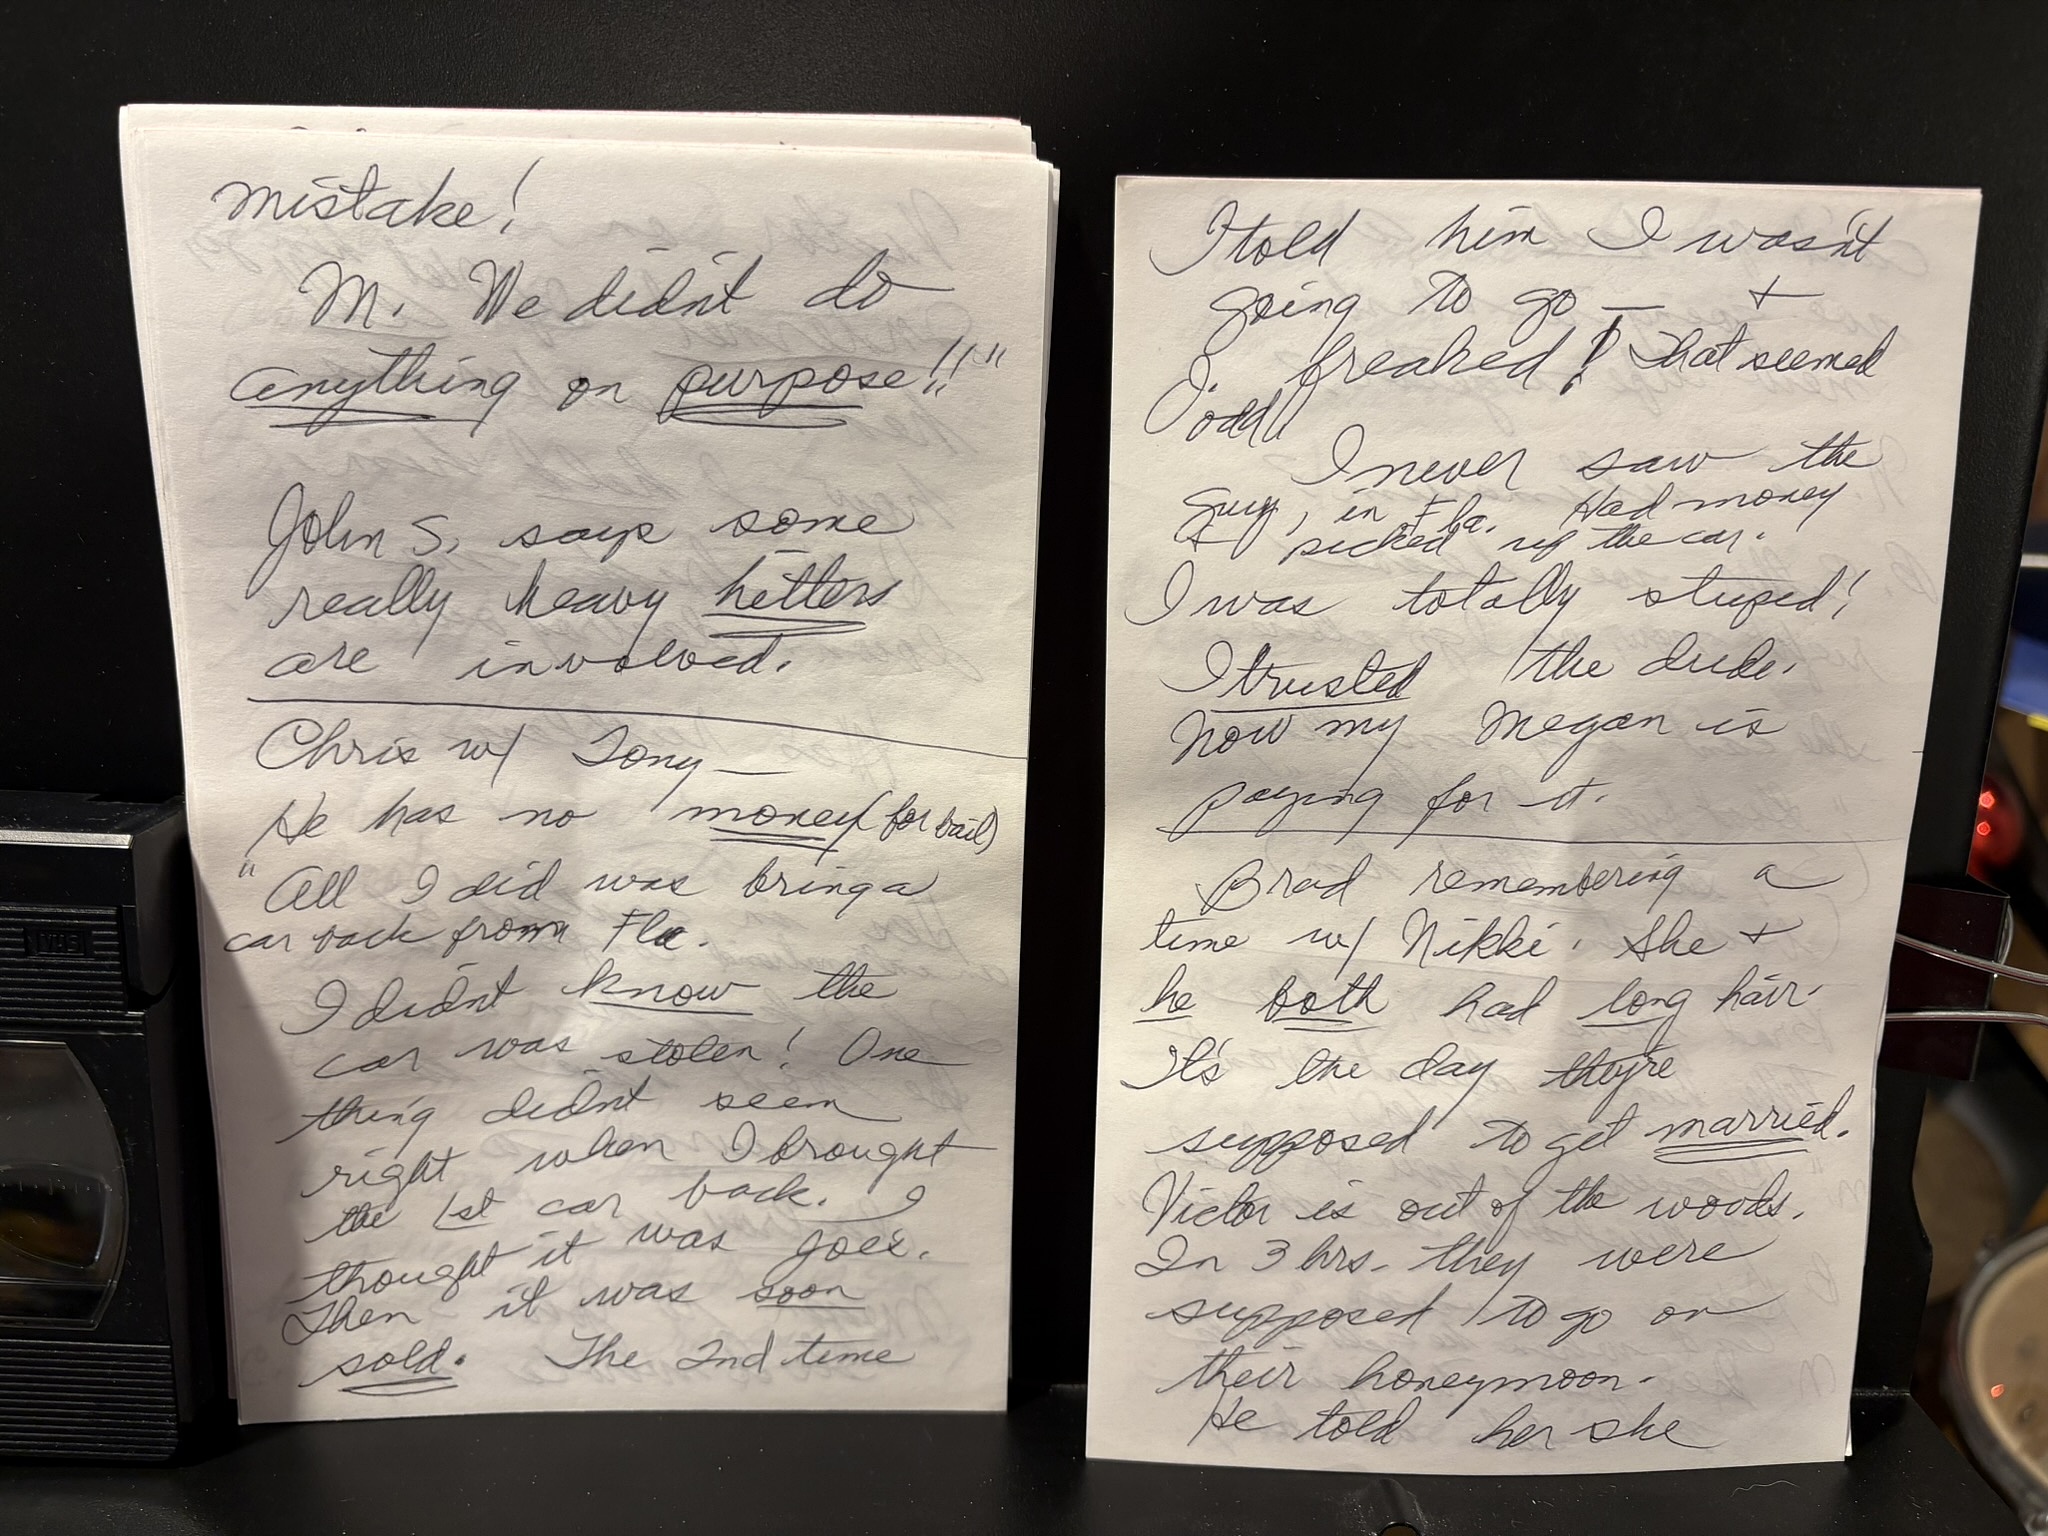 mistake!
M. We didn't do
anything on purpose!!"
John S. says some
really heavy hitters
are involved.
Chris w/ Tony—
He has no money (for bail)
"All I did was bring a
car back from Fla.
I didn't know the
car was stolen! One
thing didn't seem
right when I brought
the 1st car back. I
thought it was Joe's.
Then it was soon
sold. The 2nd time
VHS
I told him I wasn't
going to go — +
J. freaked! That seemed
odd!
I never saw the
guy, in Fla. Had money
+ picked up the car.
I was totally stupid!
I trusted the dude.
Now my Megan is
paying for it.
Brad remembering a
time w/ Nikki. She +
he both had long hair.
It's the day they're
supposed to get married.
Victor is out of the woods.
In 3 hrs. they were
supposed to go on
their honeymoon.
He told her she